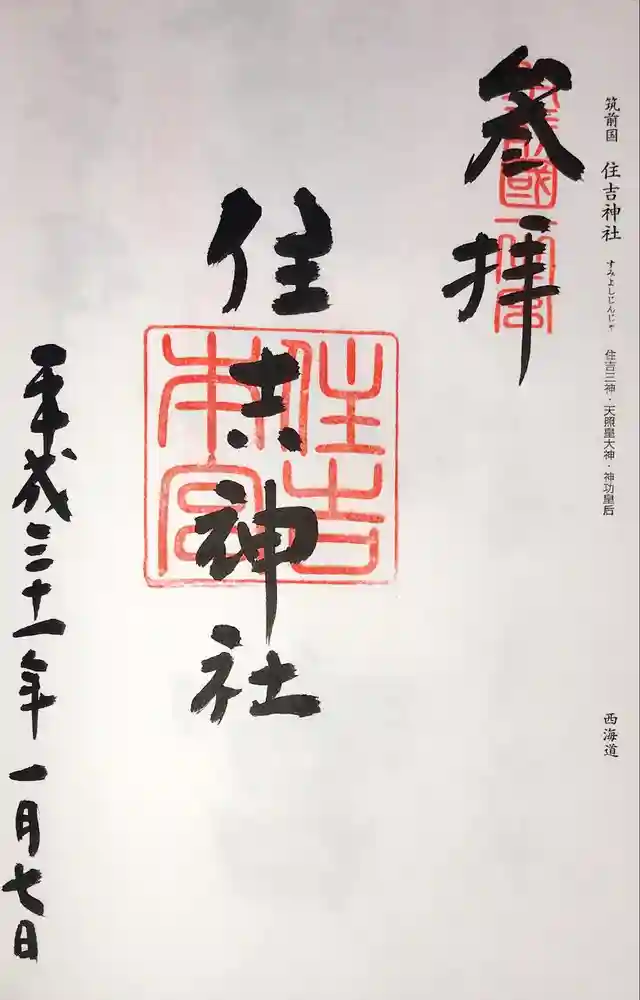 筑前国 住吉神社 すみよしじんじゃ 住吉三神・天照皇大神・神功皇后
西海道
參拝
筑前國一宮
住吉神社
住吉本宮
平成三十一年一月七日